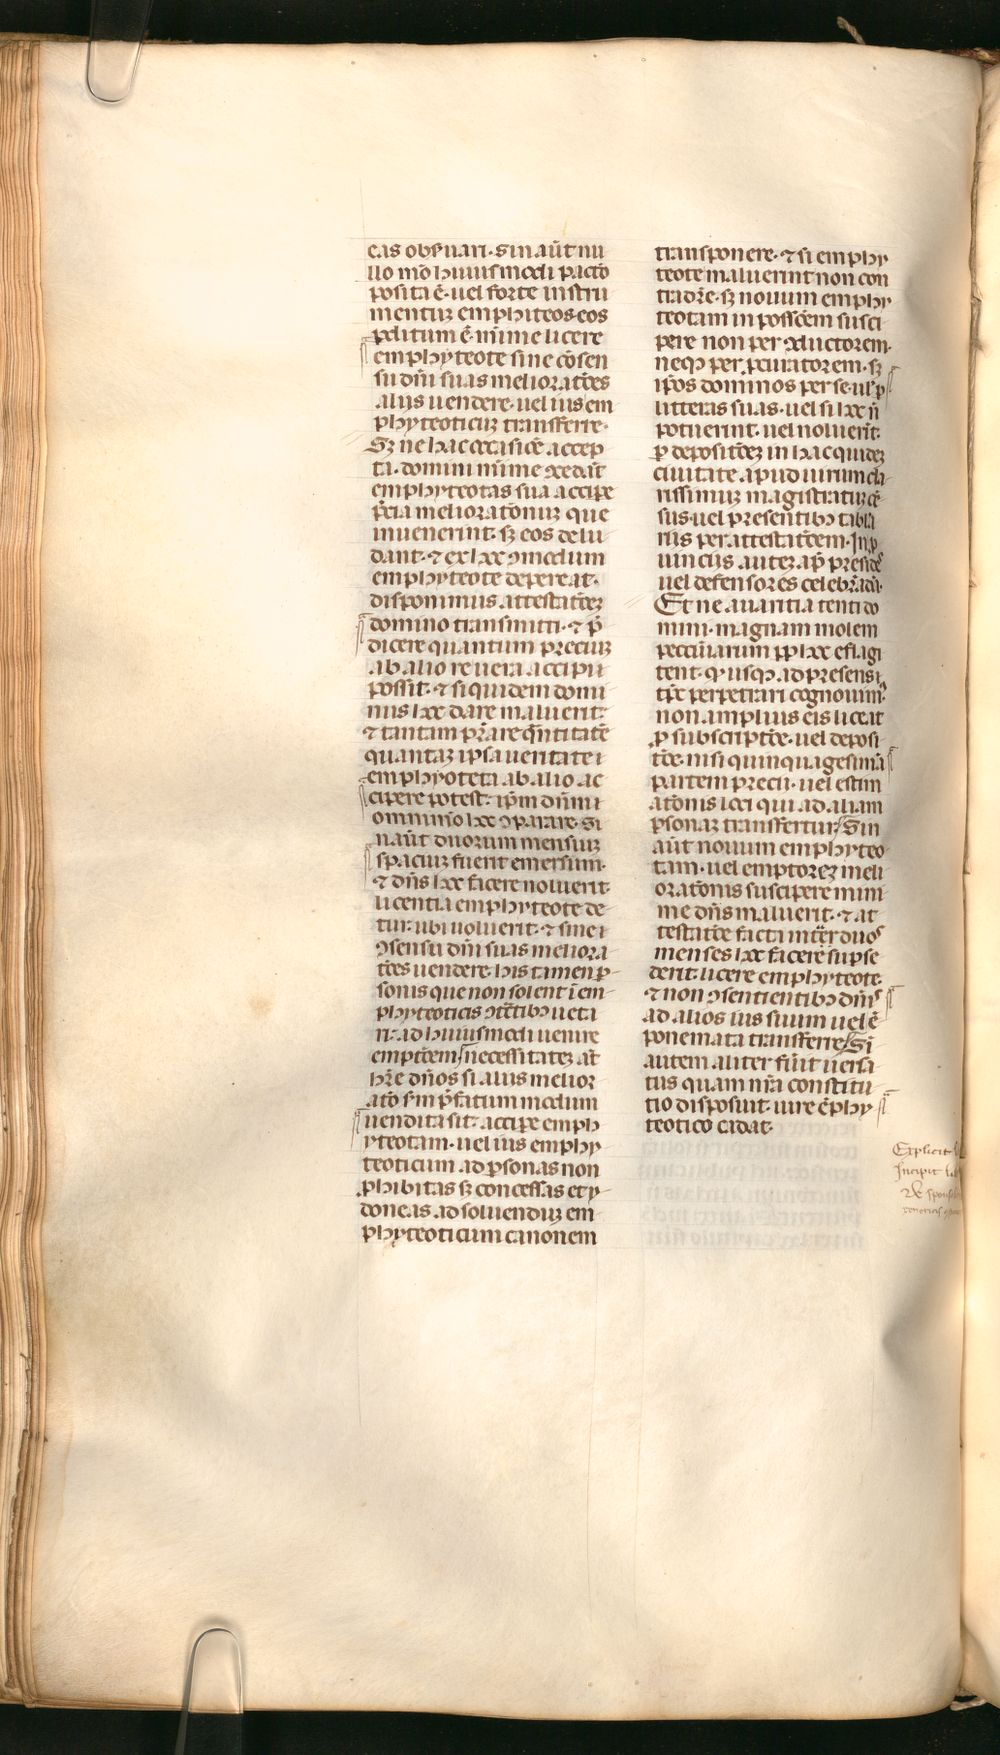 eas obẜuari. Sin aūt nu
llo mō huiusmodi pacto
posita ē. uel forte instru
mentuꝫ emphiteoseos
ꝑditum ē. mīme licere
emphyteote sine cōsen
su dn̄i suas melioratōes
aliis uendere. uel ius em
phyteoticuꝫ transferre.
Sꝫ ne hac occasiōe accep
ta. domini mīme cedāt
emphyteotas sua accipe
p̄cia melioratōnuꝫ que
inuenerint. sꝫ eos delu
dant. ⁊ ex hoc ꝯmodum
emphyteote depereat.
disponimus attestatōeꝫ
domino transmitti. ⁊ p̄
dicere quantum preciuꝫ
ab alio re uera accipi
possit. ⁊ siquidem domi
nus hoc dare maluerit
⁊ tantam p̄stare q̄ntitatē
quantaꝫ ipsa ueritate i
emphyoteta ab alio ac
cipere potest. ip̄m dn̄m
omnino hoc ꝯparare. Si
n aūt duorum mensiuꝫ
spaciuꝫ fuerit emersum.
⁊ dn̄s hoc facere noluerit.
licentia emphyteote de
tur. ubi uoluerit. ⁊ sine i
ꝯsensu dn̄i suas meliora
tōes uendere. his tamen ꝑ
sonis que non solent ī em
phyteoticis ꝯtētibꝫ ueta
ri. ad huiusmodi uenire
emptōem necessitateꝫ āt
hr̄e dn̄os si aliis melior
ato sm p̄fatum modum
uendita sit. accipe emph
yteotam. uel ius emphy
teoticum ad ꝑsonas non
ꝓhibitas sꝫ concessas et y
doneas ad soluenduꝫ em
phyteoticum canonem
transponere. ⁊ si emphy
teote maluerint non con
tradr̄e. sꝫ nouum emphy
teotam in possōem susci
pere non per ꝯductorem.
neqꝫ per ꝓcuratorem. sꝫ
ip̄os dominos per se. ul̓ ꝑ
litteras suas. uel si hoc n̄
potuerint. uel noluerit.
ꝑ depositōeꝫ in hac quideꝫ
ciuitate apud uirum cla
rissimuꝫ magistratuꝫ cē
sus. uel presentibꝫ tabu
riis per attestatōem. In ꝓ
uinciis auteꝫ ap̄ presidē
uel defensores celebrādā.
Et ne auaritia tenti do
mini. magnam molem
peccuniarum ꝓp̄ hoc eflagi
tent. qꝫ usqꝫ ad presens i
tꝑe perpetrari cognouim᷒
non amplius eis liceat
ꝓ subscriptōe. uel deposi
tōe. nisi quinquagesimā
partem precii. uel estim
atonis loci qui ad aliam
ꝑsonaꝫ transfertur Sin
aūt nouum emphyteo
tam. uel emptoreꝫ meli
oratonis suscipere mini
me dn̄s maluerit. ⁊ at
testatōe facta inter duos
menses hoc facere supse
derit. licere emphyteote.
⁊ non ꝯsentientibꝫ dn̄is
ad alios ius suum uel ē
ponemata transferre Si
autem aliter fūit uersa
tus quam nr̄a constitu
tio disposuit. iure ēphy
teotico cadat.
Explicit
Incipit